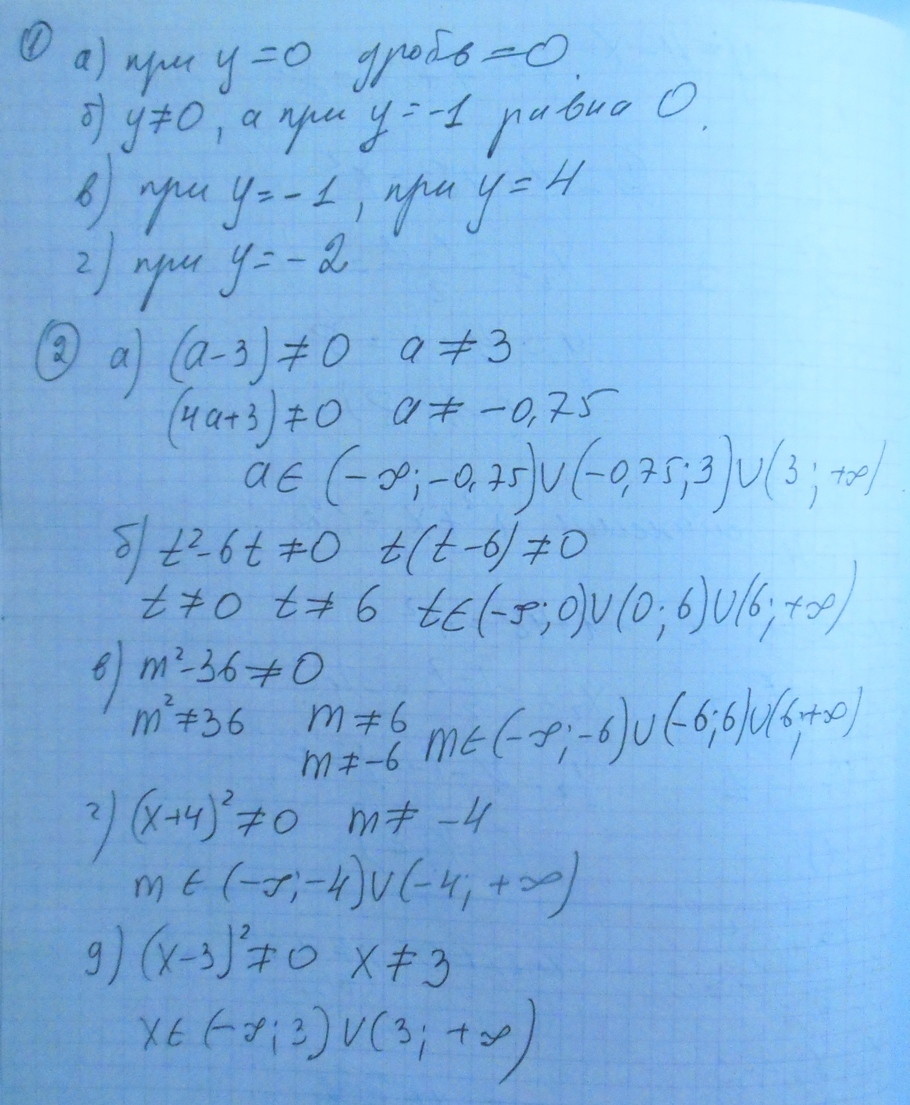 ① а) при y = 0 дробь = 0.
б) y ≠ 0, а при y = -1 равна 0.
в) при y = -1, при y = 4
г) при y = -2
② а) (a-3) ≠ 0 a ≠ 3
(4a+3) ≠ 0 a ≠ -0,75
a ∈ (-∞; -0,75) ∪ (-0,75; 3) ∪ (3; +∞)
б) t² - 6t ≠ 0 t(t-6) ≠ 0
t ≠ 0 t ≠ 6 t ∈ (-∞; 0) ∪ (0; 6) ∪ (6; +∞)
в) m² - 36 ≠ 0
m² ≠ 36 m ≠ 6
m ≠ -6 m ∈ (-∞; -6) ∪ (-6; 6) ∪ (6; +∞)
г) (x+4)² ≠ 0 m ≠ -4
m ∈ (-∞; -4) ∪ (-4; +∞)
д) (x-3)² ≠ 0 x ≠ 3
x ∈ (-∞; 3) ∪ (3; +∞)